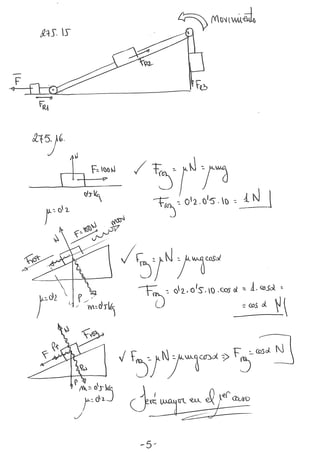 275.15
Movimiento
F
FR1
FR2
FR3
275.16.
N
F=100N
0'5kg
μ=0'2
✓ Froz = μN = μmg
Froz = 0'2·0'5·10 = 1N
N
F=100N
mov
Froz
P
m=0'5kg
μ=0'2
✓ Froz = μN = μmg cosα
Froz = 0'2·0'5·10·cosα = 1·cosα =
= cosα N
N
Froz
F
P
m=0'5kg
μ=0'2
✓ Froz = μN = μmg cosα ⇒ Froz = cosα N
Será mayor en el 1er caso
-5-